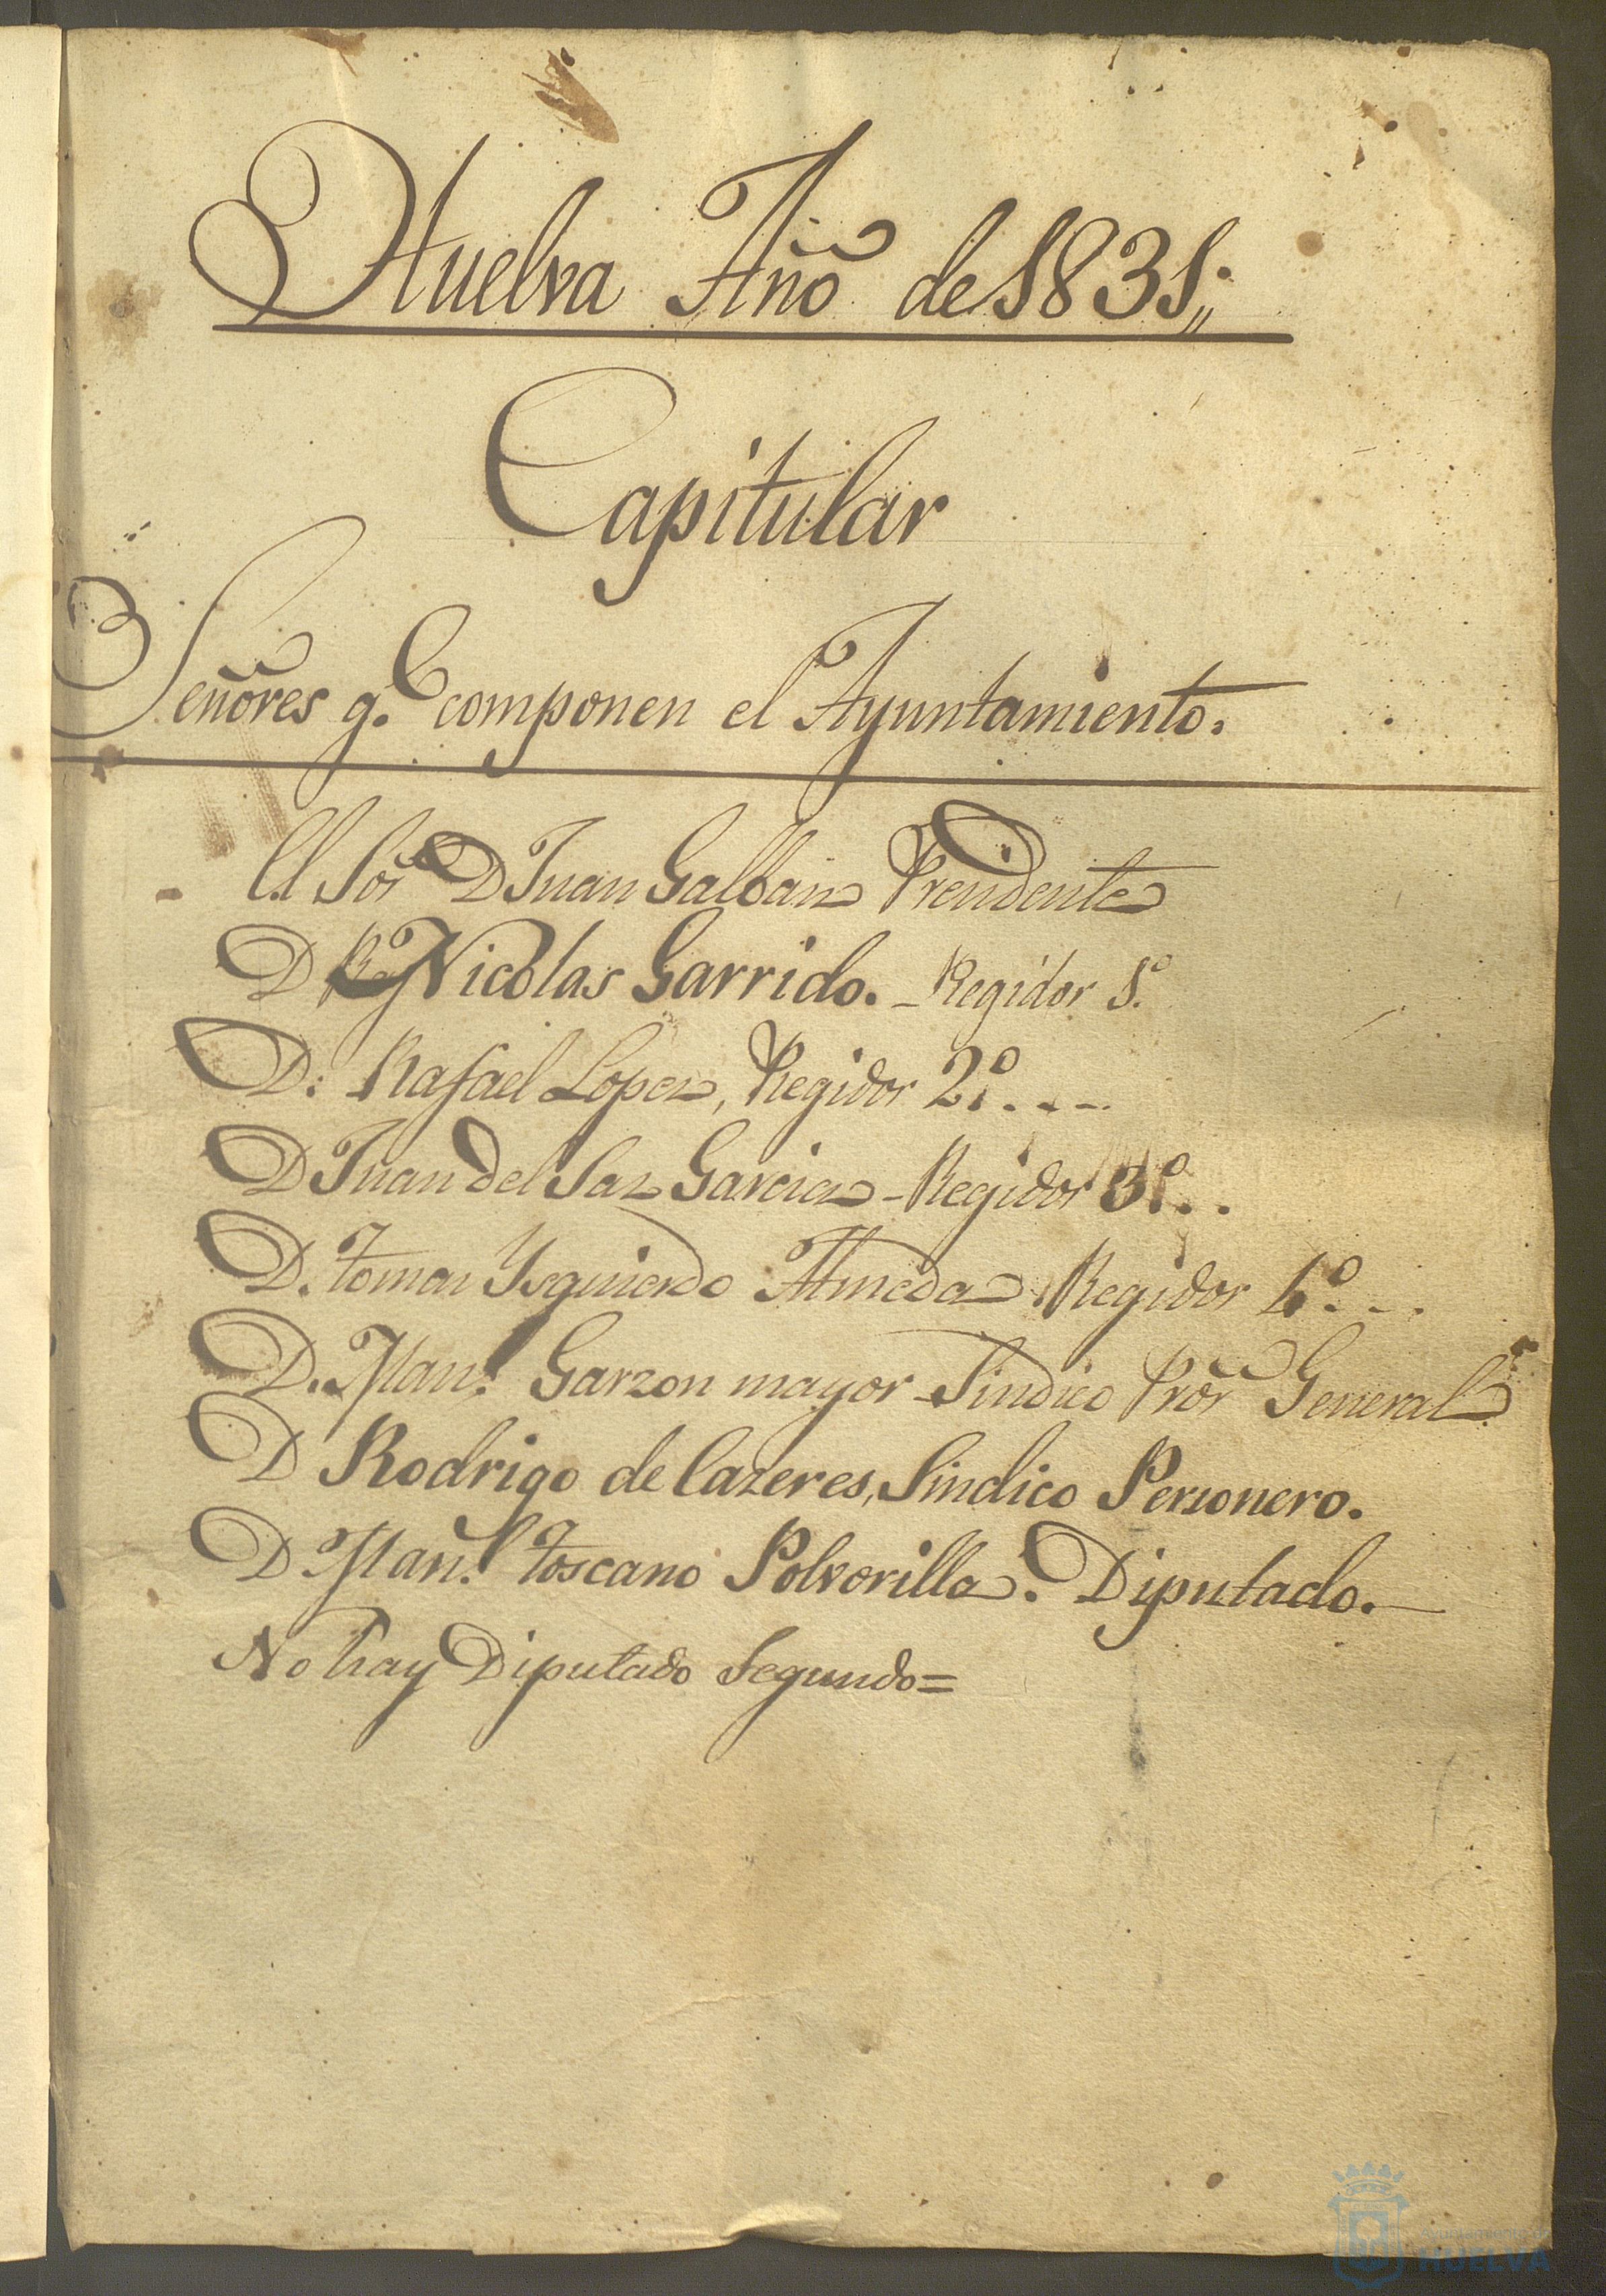 Huelva Año de 1831,,
Capitular
Señores q.e componen el Ayuntamiento.
El Sor D Juan Galban Presidente
D Nicolas Garrido. - Regidor 1.º
D: Rafael Lopez, Regidor 2º. . - -
D Juan del Saz Garcia - Regidor 3º. . .
D. tomas Ysquierdo Almeda Regidor 4º. - - .
D. Man.l Garzon mayor - Sindico Pror General
D Rodrigo de Cazeres, Sindico Personero.
D Man.l toscano Polvorilla. Diputado. -
No hay Diputado Segundo =
Ayuntamiento de
HUELVA